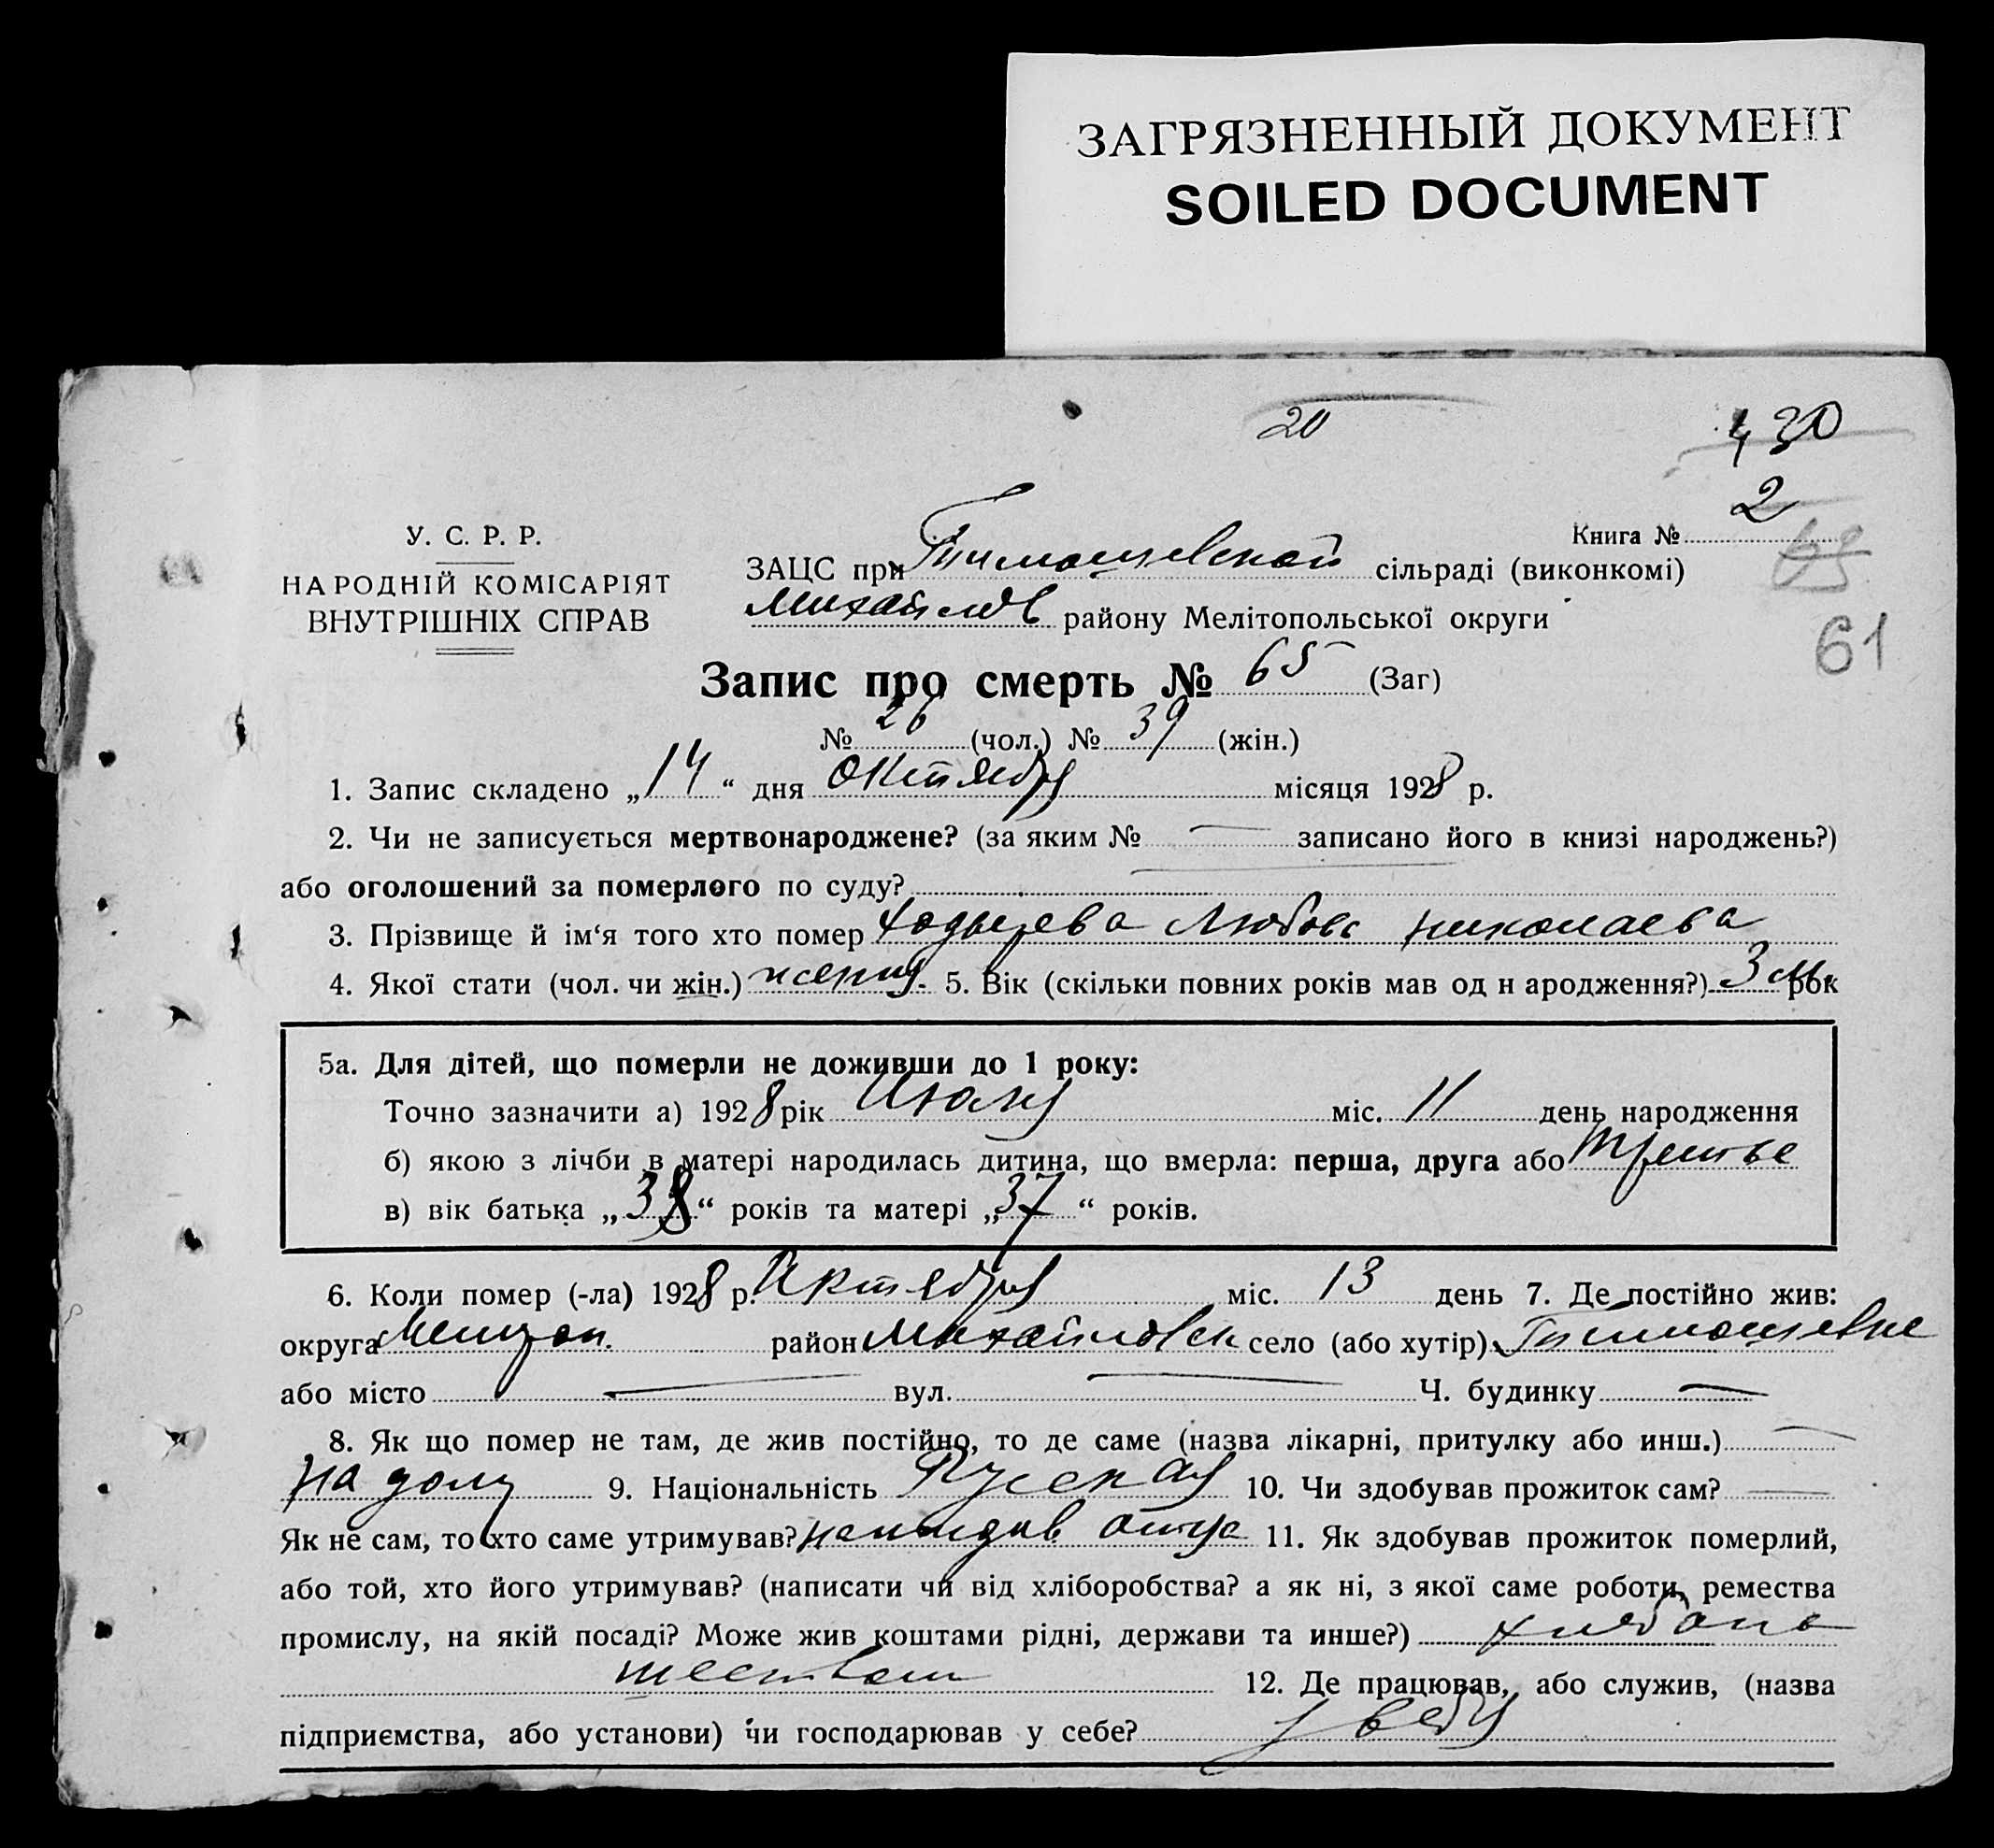 ЗАГРЯЗНЕННЫЙ ДОКУМЕНТ
SOILED DOCUMENT
20
430
2
У. С. Р. Р.
НАРОДНІЙ КОМІСАРІЯТ
ВНУТРІШНІХ СПРАВ
Книга №
ЗАЦС при Тимошевской сільраді (виконкомі)
Михайлов району Мелітопольської округи
61
Запис про смерть № 65 (Заг)
№ 26 (чол.) № 39 (жін.)
1. Запис складено „14“ дня октября місяця 1928 р.
2. Чи не записується мертвонароджене? (за яким № — записано його в книзі народжень?)
або оголошений за померлого по суду?
3. Прізвище й ім‘я того хто помер Любовь Николаева
4. Якої стати (чол. чи жін.) 5. Вік (скільки повних років мав од н ародження?) 3 м. рок
5а. Для дітей, що померли не доживши до 1 року:
Точно зазначити а) 1928 рік Июля міс. 11 день народження
б) якою з лічби в матері народилась дитина, що вмерла: перша, друга або третье
в) вік батька „38“ років та матері „37“ років.
6. Коли помер (-ла) 1928 р. Октября міс. 13 день 7. Де постійно жив:
округа район Михайловск село (або хутір) Тимошевке
або місто — вул. — Ч. будинку —
8. Як що помер не там, де жив постійно, то де саме (назва лікарні, притулку або инш.) —
на дому 9. Національність Руская 10. Чи здобував прожиток сам? —
Як не сам, то хто саме утримував? на иждив. отца 11. Як здобував прожиток померлий,
або той, хто його утримував? (написати чи від хліборобства? а як ні, з якої саме роботи, ремества
промислу, на якій посаді? Може жив коштами рідні, держави та инше?) хлебопа
шеством 12. Де працював, або служив, (назва
підприємства, або установи) чи господарював у себе? у себя